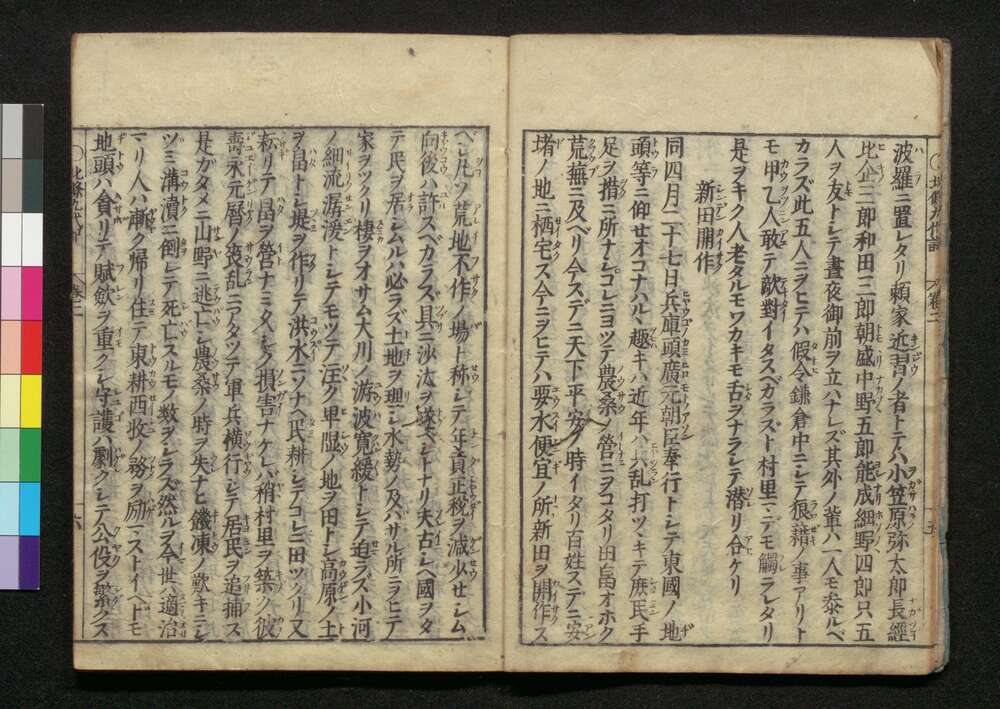 波羅ニ置レタリ頼家近習ノ者トテハ小笠原弥太郎長經
比企三郎和田三郎朝盛中野五郎能成細野四郎只五
人ヲ友トシテ晝夜御前ヲ立ハナレズ其外ノ輩ハ一人モ参ルベ
カラズ此五人ニヲヒテハ假令鎌倉中ニシテ狼藉ノ事アリト
モ甲乙人敢テ敵對イタスベカラズト村里ニデモ觸ラレタリ
是ヲキク人老タルモワカキモ舌ヲナラシテ潜リ合ケリ
新田開作
同四月二十七日兵庫頭廣元朝臣奉行トシテ東國ノ地
頭等ニ仰セオコナハルヽ趣キハ近年ハ乱打ツヽキテ庶民手
足ヲ措ニ所ナシコレニヨツテ農桑ノ營ニヲコタリ田畠オホク
荒蕪ニ及ベリ今スデニ天下平安ノ時イタリ百姓ステニ安
堵ノ地ニ栖宅ス今ニヲヒテハ要水便宜ノ所新田ヲ開作ス
ベシ凡ソ荒地不作ノ場ト称シテ年貢正税ヲ減少セシム
向後ハ許スベカラズ具ニ沙汰ヲ遂ベシトナリ夫古シヘ國ヲタ
テ民ヲ居シムルハ必ラズ土地ヲ理シ水勢ノ及バサル所ニヲヒテ
家ヲツクリ棲ヲオサム大川ノ游波寛緩トシテ迫ラズ小河
ノ細流潺湲トシテモツテ注グ卑濕ノ地ヲ田トシ高原ノ土
ヲ畠トシ堤ヲ作リテ洪水ニソナヘ民耕シテコレニ田ツクリ又
耘リテ畠ヲ營ナミ久シク損害ナケレバ稍村里ヲ築ク彼
壽永元暦ノ喪乱ニアタツテ軍兵横行シテ居民ヲ追捕ス
是ガタメニ山野ニ逃亡シ農桑ノ時ヲ失ナヒ饑凍ノ歎キニシ
ツミ溝瀆ニ倒レテ死亡スルモノ数ヲシラズ然ルヲ今世ハ適治
マリ人ハ漸ク帰リ住テ東耕西收ノ務ヲ励ミストイヘドモ
地頭ハ貪リテ賦斂ヲ重クシ守護ハ劇クシテ公役ヲ繁クス